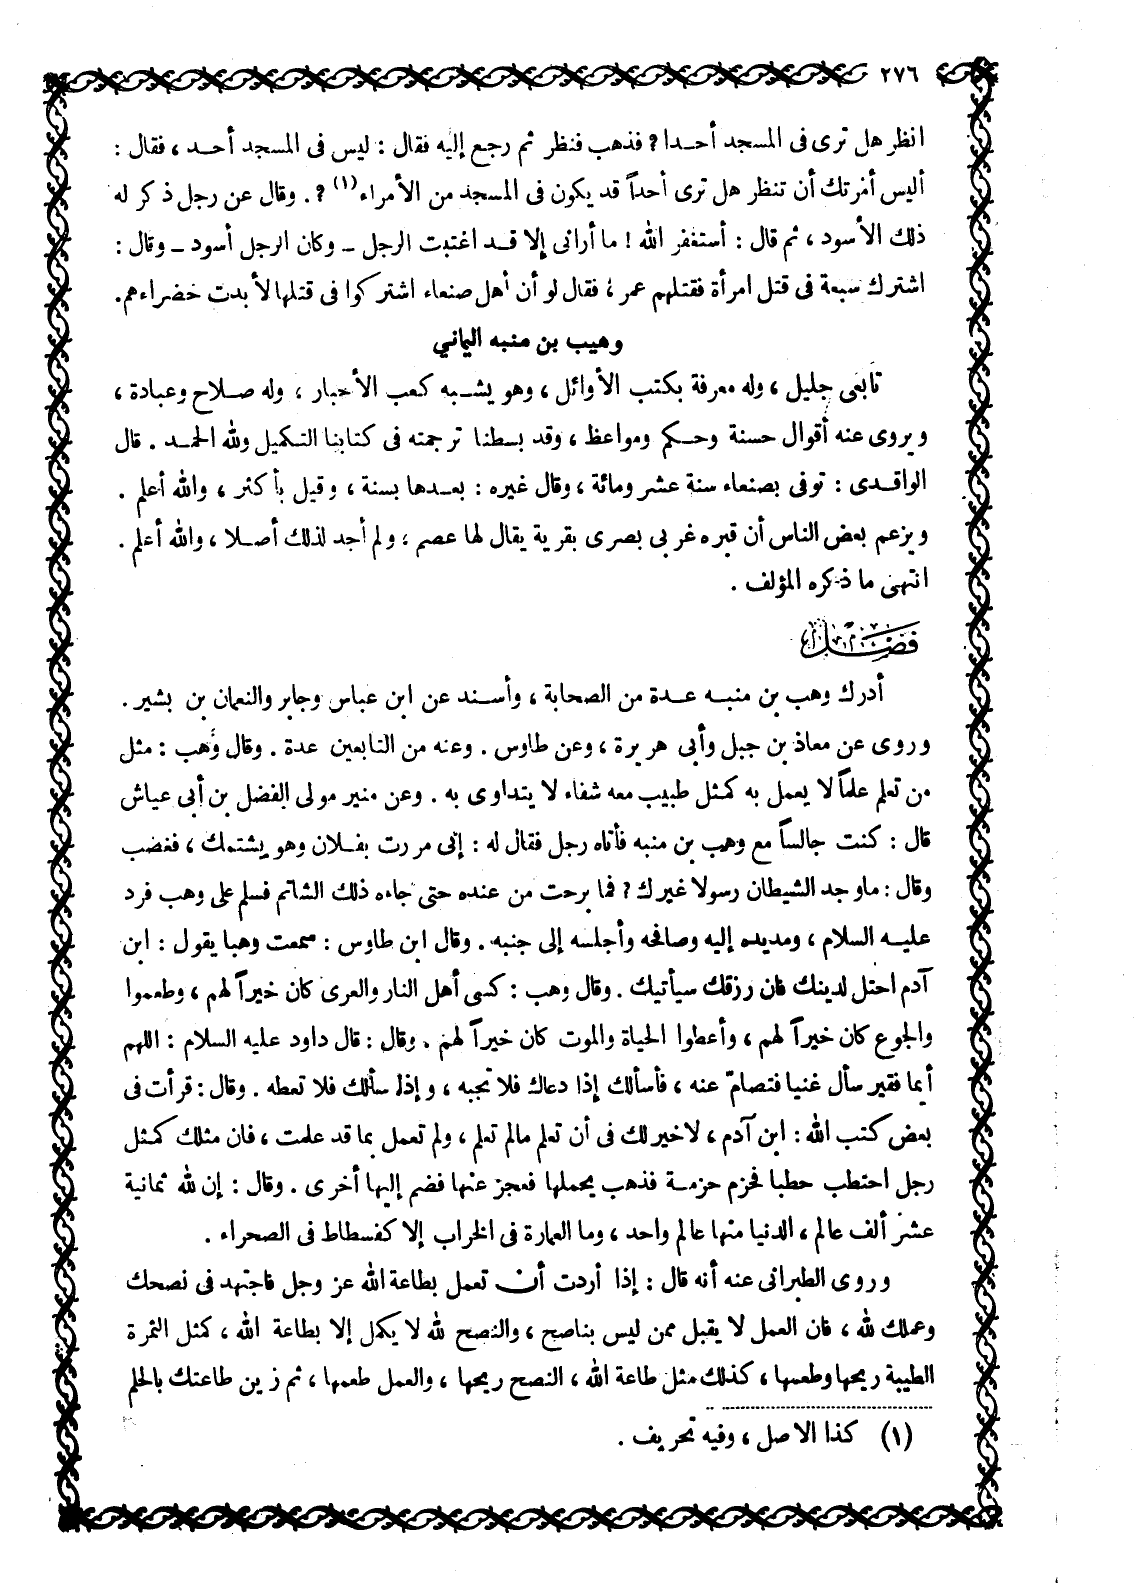 ٢٧٦
انظر هل ترى فى المسجد أحدا ؟ فذهب فنظر ثم رجع إليه فقال : ليس فى المسجد أحد ، فقال :
أليس أمرتك أن تنظر هل ترى أحداً قد يكون فى المسجد من الأمراء (١) ؟ . وقال عن رجل ذكر له
ذلك الأسود ، ثم قال : أستغفر الله ! ما أرانى إلا قد اغتبت الرجل ـ وكان الرجل أسود ـ وقال :
اشترك سبعة فى قتل امرأة فقتلهم عمر ، فقال لو أن أهل صنعاء اشتركوا فى قتلها لأبدت خضراءهم.
وهيب بن منبه اليماني
تابعى جليل ، وله معرفة بكتب الأوائل ، وهو يشبه كعب الأحبار ، وله صلاح وعبادة ،
ويروى عنه أقوال حسنة وحكم ومواعظ ، وقد بسطنا ترجمته فى كتابنا التكميل ولله الحمد . قال
الواقدى : توفى بصنعاء سنة عشر ومائة ، وقال غيره : بعدها بسنة ، وقيل بأكثر ، والله أعلم .
ويزعم بعض الناس أن قبره غربى بصرى بقرية يقال لها عصم ، ولم أجد لذلك أصلا ، والله أعلم .
انتهى ما ذكره المؤلف .
فصل
أدرك وهب بن منبه عدة من الصحابة ، وأسند عن ابن عباس وجابر والنعمان بن بشير .
وروى عن معاذ بن جبل وأبى هريرة ، وعن طاوس . وعنه من التابعين عدة . وقال وهب : مثل
من تعلم علماً لا يعمل به كمثل طبيب معه شفاء لا يتداوى به . وعن منير مولى الفضل بن أبى عياش
قال : كنت جالساً مع وهب بن منبه فأتاه رجل فقال له : إنى مررت بفلان وهو يشتمك ، فغضب
وقال : ما وجد الشيطان رسولا غيرك ؟ فما برحت من عنده حتى جاءه ذلك الشاتم فسلم على وهب فرد
عليه السلام ، ومد يده إليه وصافحه وأجلسه إلى جنبه . وقال ابن طاوس : سمعت وهبا يقول : ابن
آدم احتل لدينك فان رزقك سيأتيك . وقال وهب : كسى أهل النار والعرى كان خيراً لهم ، وطعموا
والجوع كان خيراً لهم ، وأعطوا الحياة والموت كان خيراً لهم . وقال : قال داود عليه السلام : اللهم
أيما فقير سأل غنيا فتصامّ عنه ، فأسألك إذا دعاك فلا تجبه ، وإذا سألك فلا تعطه . وقال : قرأت فى
بعض كتب الله : ابن آدم ، لا خير لك فى أن تعلم مالم تعلم ، ولم تعمل بما قد علمت ، فان مثلك كمثل
رجل احتطب حطبا فحزم حزمة فذهب يحملها فعجز عنها فضم إليها أخرى . وقال : إن لله ثمانية
عشر ألف عالم ، الدنيا منها عالم واحد ، وما العمارة فى الخراب إلا كفسطاط فى الصحراء .
وروى الطبرانى عنه أنه قال : إذا أردت أن تعمل بطاعة الله عز وجل فاجتهد فى نصحك
وعملك لله ، فان العمل لا يقبل ممن ليس بناصح ، والنصح لله لا يكمل إلا بطاعة الله ، كمثل الثمرة
الطيبة ريحها وطعمها ، كذلك مثل طاعة الله ، النصح ريحها ، والعمل طعمها ، ثم زين طاعتك بالحلم
(١) كذا الاصل ، وفيه تحريف .